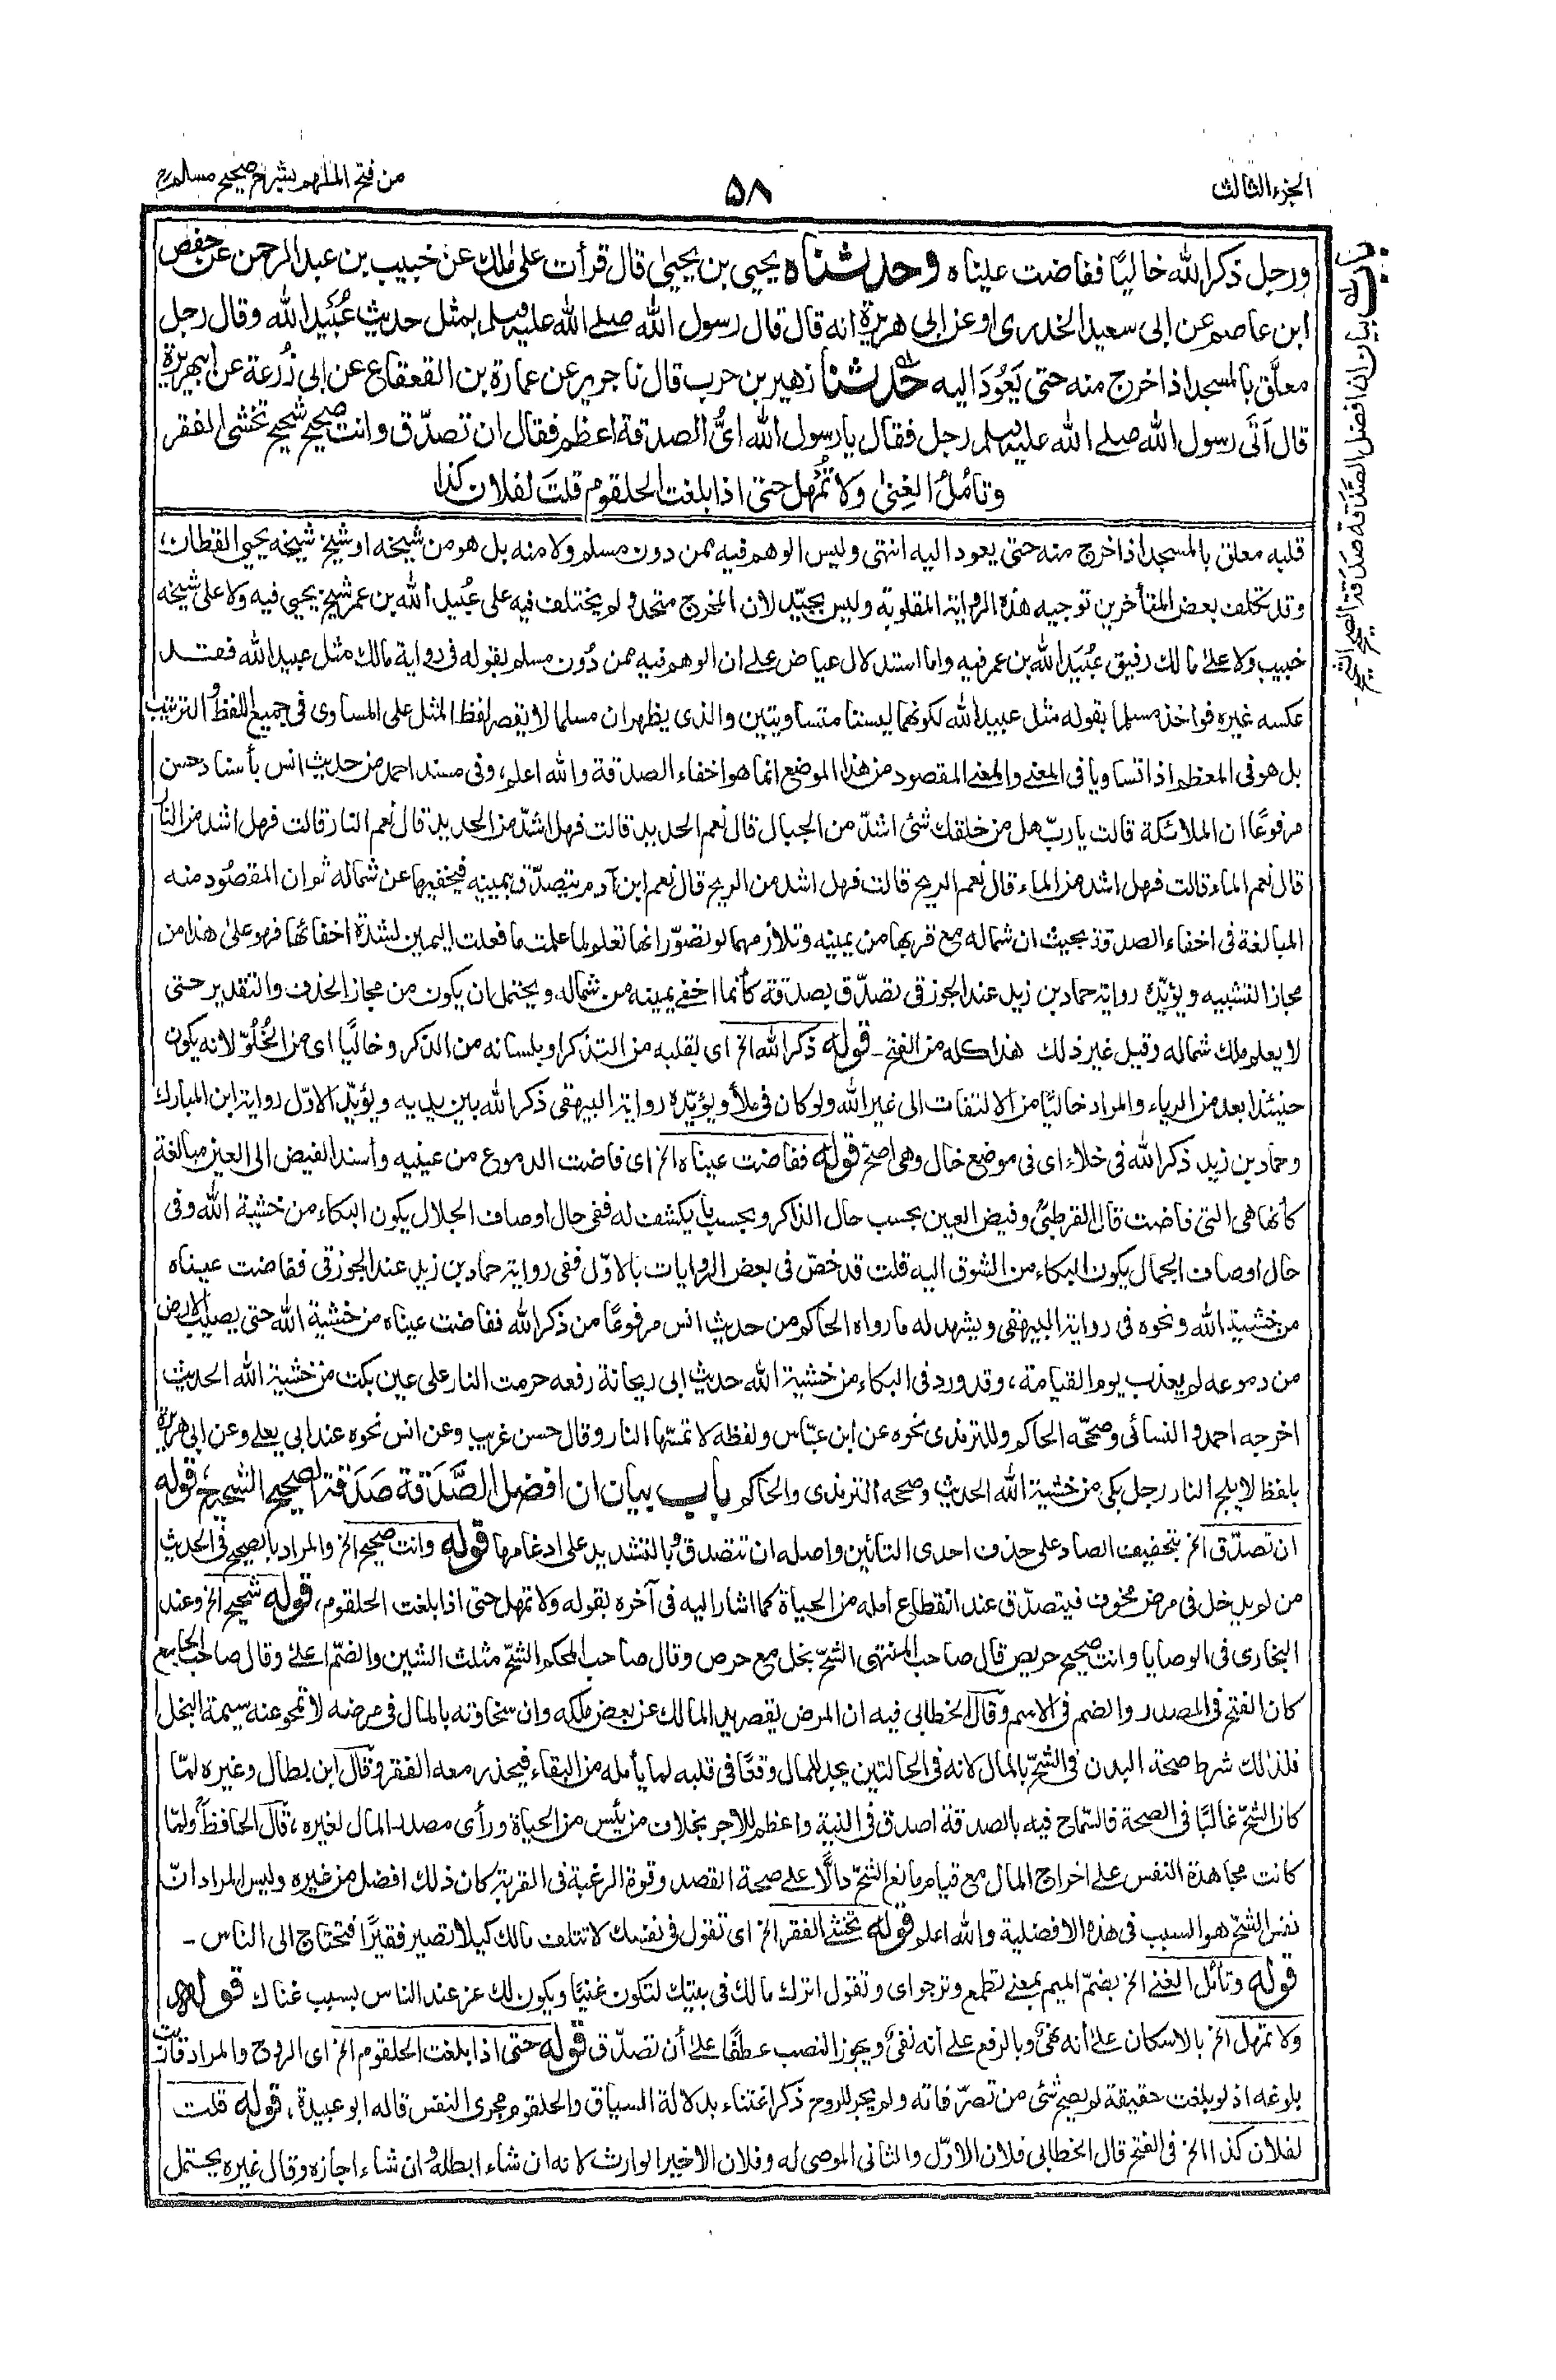 الجزء الثالث
۵۸
من فتح الملهم بشرح صحيح مسلم
باب بيان ان افضل الصَّدَقة صَدَقة الصحيح الشحيح -
ورجل ذكر الله خاليًا ففاضت عيناه وحدثناه يحيى بن يحيىٰ قال قرأت علىٰ مٰلك عن خبيب بن عبد الرحمن عن حفص
ابن عاصم عن ابى سعيد الخدرى او عن ابى هريرة انه قال قال رسول الله صلے الله عليه وسلم بمثل حديث عُبَيد الله وقال رجل
معلَّق بالمسجد اذا خرج منه حتى يَعُودَ اليه حدثنا زهير بن حرب قال نا جرير عن عمارة بن القعقاع عن ابى زُرعة عن ابى هريرة
قال اَتَى رسول الله صلے الله عليه وسلم رجل فقال يا رسول الله اىُّ الصدقة اعظم فقال ان تصدّق وانت صحيح شحيح تخشى الفقر
وتامُلُ الغِنىٰ وَلا تُمْهِل حتىٰ اذا بلغت الحلقوم قلتَ لفلان كذا
قلبه معلق بالمسجد اذا خرج منه حتى يعود اليه انتهى وليس الوهم فيه ممن دون مسلم ولا منه بل هو من شيخه او شيخ شيخه يحيي القطان؛
وقد تكلف بعض المتأخرين توجيه هذه الرواية المقلوبة وليس بجيّد لان المخرج متحد ولم يختلف فيه على عُبيد الله بن عمر شيخ يحيى فيه ولا على شيخه
خبيب ولا علىٰ مالك رفيق عُبَيد الله بن عمر فيه واما استدلال عياض علے ان الوهم فيه ممن دُون مسلم بقوله فى رواية مالك مثل عبيد الله فقد
عكسه غيره فواخذ مسلما بقوله مثل عبيد الله لكونهما ليستا متساويتين والذى يظهر ان مسلما لا يقصر لفظ المثل على المساوى فى جميع اللفظ والترتيب
بل هو فى المعظم اذا تساويا فى المعنے والمعنے المقصود من هذا الموضع انما هو اخفاء الصدقة والله اعلم، وفى مسند احمد من حديث انس بأسناد حسن
مرفوعًا ان الملائكة قالت يا ربّ هل من خلقك شئ اشدّ من الجبال قال نعم الحديد قالت فهل اشدّ من الحديد قال نعم النار قالت فهل اشد من النار
قال نعم الماء قالت فهل اشد من الماء قال نعم الريح قالت فهل اشد من الريح قال نعم ابن آدم يتصدّق بيمينه فيخفيها عن شماله ثم ان المقصُود منه
المبالغة فى اخفاء الصدقة بحيث ان شماله مع قربها من يمينه وتلازمهما لو تصوّر انها تعلم لما علمت ما فعلت اليمين لشدة اخفائها فهو علىٰ هذا من
مجاز التشبيه ويؤيّده رواية حماد بن زيد عند الجوزقى تصدّق بصدقة كأنما اخفے يمينه من شماله، ويحتمل ان يكون من مجاز الحذف والتقدير حتى
لا يعلم ملك شماله وقيل غير ذلك هذا كله من الفتح - قوله ذكر الله الخ اى بقلبه من التذكر او بلسانه من الذكر وخاليًا اى من الخُلُوّ لانه يكون
حينئذ ابعد من الرياء والمراد خاليًا من الالتفات الى غير الله ولو كان فى ملأ ويؤيّده رواية البيهقى ذكر الله بين يديه ويؤيّد الاوّل رواية ابن المبارك
وحماد بن زيد ذكر الله فى خلاء اى فى موضع خال وهى اصحّ قوله ففاضت عيناه الخ اى فاضت الدموع من عينيه وأسند الفيض الى العين مبالغة
كأنها هى التى فاضت قال القرطبىُّ وفيض العين بحسب حال الذاكر وبحسب ما يكشف له ففى حال اوصاف الجلال يكون البكاء من خشية الله وفى
حال اوصاف الجمال يكون البكاء من الشوق اليه قلت قد خصّ فى بعض الروايات بالاوّل ففى رواية حماد بن زيد عند الجوزقى ففاضت عيناه
من خشية الله ونحوه فى رواية البيهقى ويشهد له ما رواه الحاكم من حديث انس مرفوعًا من ذكر الله ففاضت عيناه من خشية الله حتى يصيب الارض
من دموعه لم يعذب يوم القيامة، وقد ورد فى البكاء من خشية الله حديث ابى ريحانة رفعه حرمت النار على عين بكت من خشية الله الحديث
اخرجه احمد والنسائى وصحّحه الحاكم وللترمذى نحوه عن ابن عبّاس ولفظه لا تمسّها النار وقال حسن غريب وعن انس نحوه عند ابى يعلے وعن ابى هريرة
بلفظ لا يلج النار رجل بكى من خشية الله الحديث وصححه الترمذى والحاكم باب بيان ان افضل الصَّدَقة صَدَقة الصحيح الشحيح، قوله
ان تصدّق الخ بتخفيف الصاد على حذف احدى التائين واصله ان تتصدق وبالتشديد على ادغامها قوله وانت صحيح الخ والمراد بالصحيح فى الحديث
من لم يدخل فى مرض مخوف فيتصدّق عند انقطاع أمله من الحياة كما اشار اليه فى آخره بقوله ولا تمهل حتى اذا بلغت الحلقوم، قوله شحيح الخ وعند
البخارى فى الوصايا وانت صحيح حريص قال صاحب المنتهى الشحّ بخل مع حرص وقال صاحب المحكم الشحّ مثلث الشين والضمّ اعلىٰ وقال صاحب الجامع
كان الفتح فى المصدر والضم فى الاسم وقال الخطابى فيه ان المرض يقصر يد المالك عن بعض ملكه وان سخاوته بالمال فى مرضه لا تمحو عنه سيمة البخل
فلذلك شرط صحة البدن فى الشحّ بالمال لانه فى الحالتين يجد للمال وقعًا فى قلبه لما يأمله من البقاء فيحذر معه الفقر وقال ابن بطال وغيره لمّا
كان الشحّ غالبًا فى الصحة فالسّماح فيه بالصدقة اصدق فى النية واعظم للاجر بخلاف من يئس من الحياة ورأى مصير المال لغيره، قال الحافظُ ولمّا
كانت مجاهدة النفس على اخراج المال مع قيام مانع الشحّ دالًّا علے صحة القصد وقوة الرغبة فى القربة كان ذلك افضل من غيره وليس المراد انّ
نفس الشحّ هو السبب فى هذه الافضلية والله اعلم قوله تخشے الفقر الخ اى تقول فى نفسك لا تتلف مالك كيلا تصير فقيرًا فتحتاج الى الناس -
قوله وتأمُل الغنے الخ بضمّ الميم بمعنے تطمع وترجو اى وتقول اترك مالك فى بيتك لتكون غنيًا ويكون لك عز عند الناس بسبب غناك قوله
ولا تمهل الخ بالاسكان علىٰ أنه نهىٌ وبالرفع على أنه نفىٌ ويجوز النصب عطفًا علىٰ أن تصدّق قوله حتى اذا بلغت الحلقوم الخ اى الروح والمراد قاربت
بلوغه اذ لو بلغت حقيقة لم يصح شئى من تصرّفاته ولم يجر للروح ذكر اغتناء بدلالة السياق والحلقوم مجرى النفس قاله ابو عبيدة، قوله قلت
لفلان كذا الخ فى الفتح قال الخطابى فلان الاوّل والثانى الموصى له وفلان الاخير الوارث لانه ان شاء ابطله وان شاء اجازه وقال غيره يحتمل